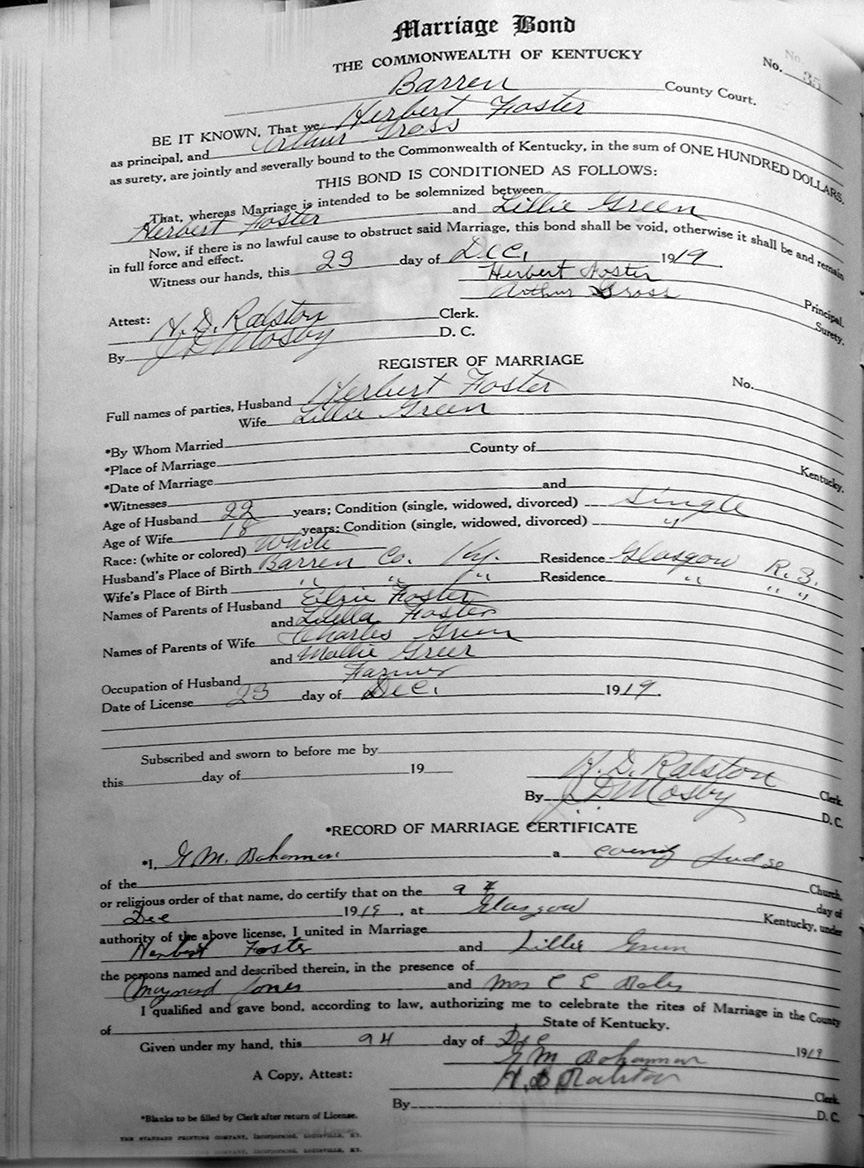 Marriage Bond
THE COMMONWEALTH OF KENTUCKY
No. 35
Barren County Court.
BE IT KNOWN, That we Herbert Foster
as principal, and Arthur Gross
as surety, are jointly and severally bound to the Commonwealth of Kentucky, in the sum of ONE HUNDRED DOLLARS.
THIS BOND IS CONDITIONED AS FOLLOWS:
That, whereas Marriage is intended to be solemnized between
Herbert Foster and Lillie Green
Now, if there is no lawful cause to obstruct said Marriage, this bond shall be void, otherwise it shall be and remain
in full force and effect.
Witness our hands, this 23 day of Dec, 1919
Herbert Foster
Principal.
Arthur Gross
Surety.
Attest: H. D. Ralston Clerk.
By J D Mosby D. C.
REGISTER OF MARRIAGE
No.
Full names of parties, Husband Herbert Foster
Wife Lillie Green
*By Whom Married
*Place of Marriage County of Kentucky.
*Date of Marriage
*Witnesses and
Age of Husband 22 years; Condition (single, widowed, divorced) Single
Age of Wife 18 years; Condition (single, widowed, divorced) "
Race: (white or colored) White
Husband's Place of Birth Barren Co. Ky. Residence Glasgow R. 3.
Wife's Place of Birth " " " Residence " " "
Names of Parents of Husband Foster
and Foster
Names of Parents of Wife Charles Green
and Mollie Green
Occupation of Husband Farmer
Date of License 23 day of Dec. 1919.
Subscribed and sworn to before me by
this day of 19
H. D. Ralston Clerk
By J D Mosby D. C.
*RECORD OF MARRIAGE CERTIFICATE
*I, G M. Bohannan a county Judge
of the Church,
or religious order of that name, do certify that on the day of
Dec 1919, at Glasgow Kentucky, under
authority of the above license, I united in Marriage
Herbert Foster and Lillie Green
the persons named and described therein, in the presence of
Maynard Jones and Mrs C E
I qualified and gave bond, according to law, authorizing me to celebrate the rites of Marriage in the County
of State of Kentucky.
Given under my hand, this day of Dec 1919
G M Bohannan
A Copy, Attest: H. D Ralston
Clerk
By D. C.
*Blanks to be filled by Clerk after return of License.
THE STANDARD PRINTING COMPANY, INCORPORATED, LOUISVILLE, KY.